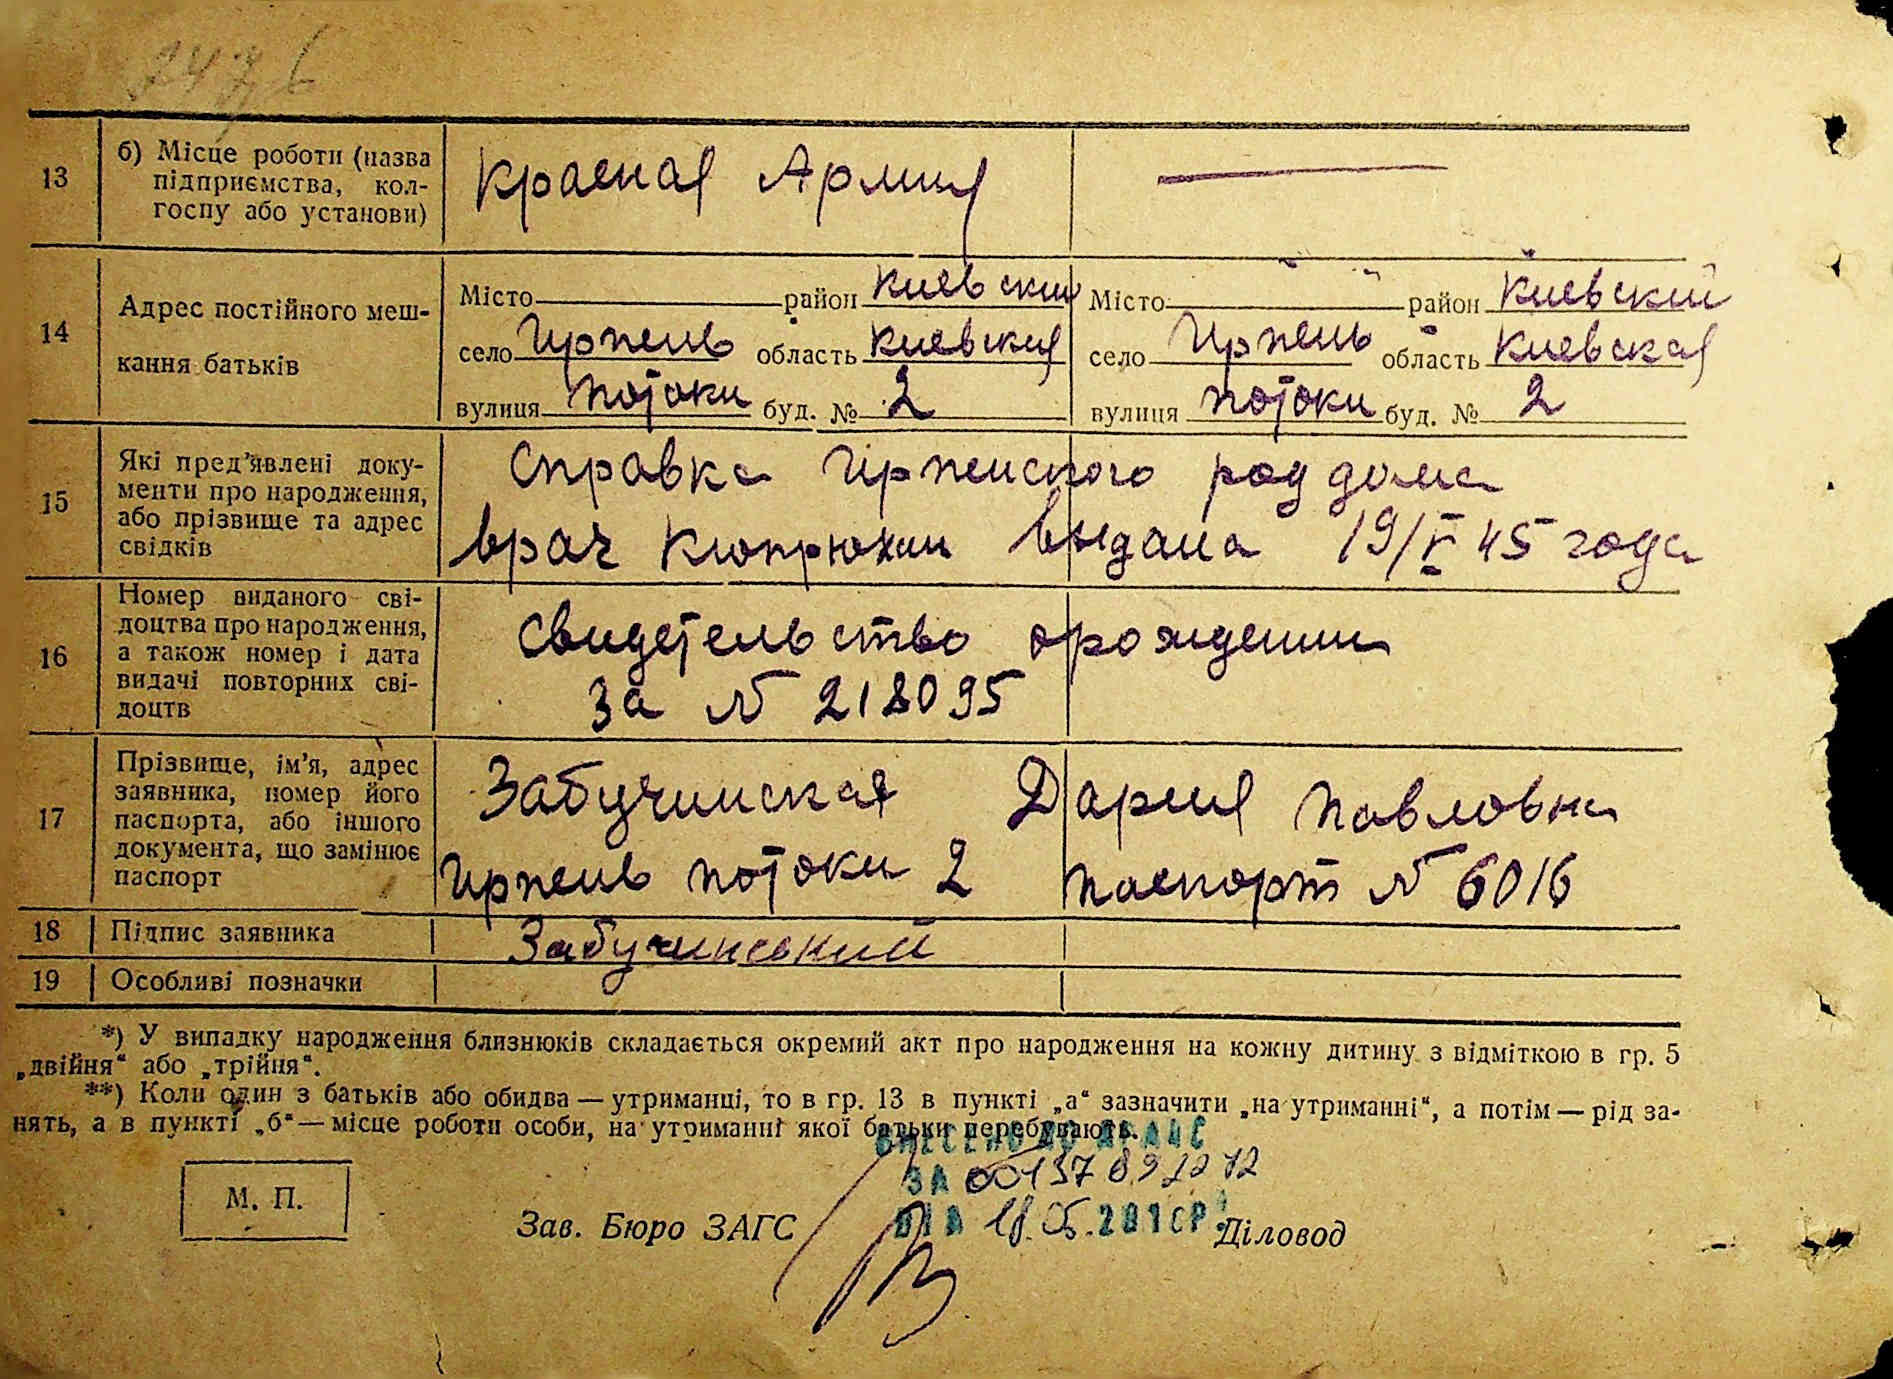 2476
13
б) Місце роботи (назва
підприємства, кол-
госпу або установи)
Красная Армия
14
Адрес постійного меш-
кання батьків
Місто район Киевский
село Ирпень область Киевская
вулиця Потоки буд. № 2
Місто район Киевский
село Ирпень область Киевская
вулиця Потоки буд. № 2
15
Які пред'явлені доку-
менти про народження,
або прізвище та адрес
свідків
Справка Ирпенского род дома
врач выдана 19/V 45 года
16
Номер виданого сві-
доцтва про народження,
а також номер і дата
видачі повторних сві-
доцтв
Свидетельство о рождении
за N 218095
17
Прізвище, ім'я, адрес
заявника, номер його
паспорта, або іншого
документа, що замінює
паспорт
Забучинская Дария Павловна
Ирпень Потоки 2 паспорт N 6016
18
Підпис заявника
Забучинський
19
Особливі позначки
*) У випадку народження близнюків складається окремий акт про народження на кожну дитину з відміткою в гр. 5
„двійня“ або „трійня“.
**) Коли один з батьків або обидва — утриманці, то в гр. 13 в пункті „а“ зазначити „на утриманні“, а потім — рід за-
нять, а в пункті „б“ — місце роботи особи, на утриманні якої батьки перебувають.
ВНЕСЕНО ДО ДРАЦС
ЗА
ВІД 18.05.2010Р.
М. П.
Зав. Бюро ЗАГС
Діловод